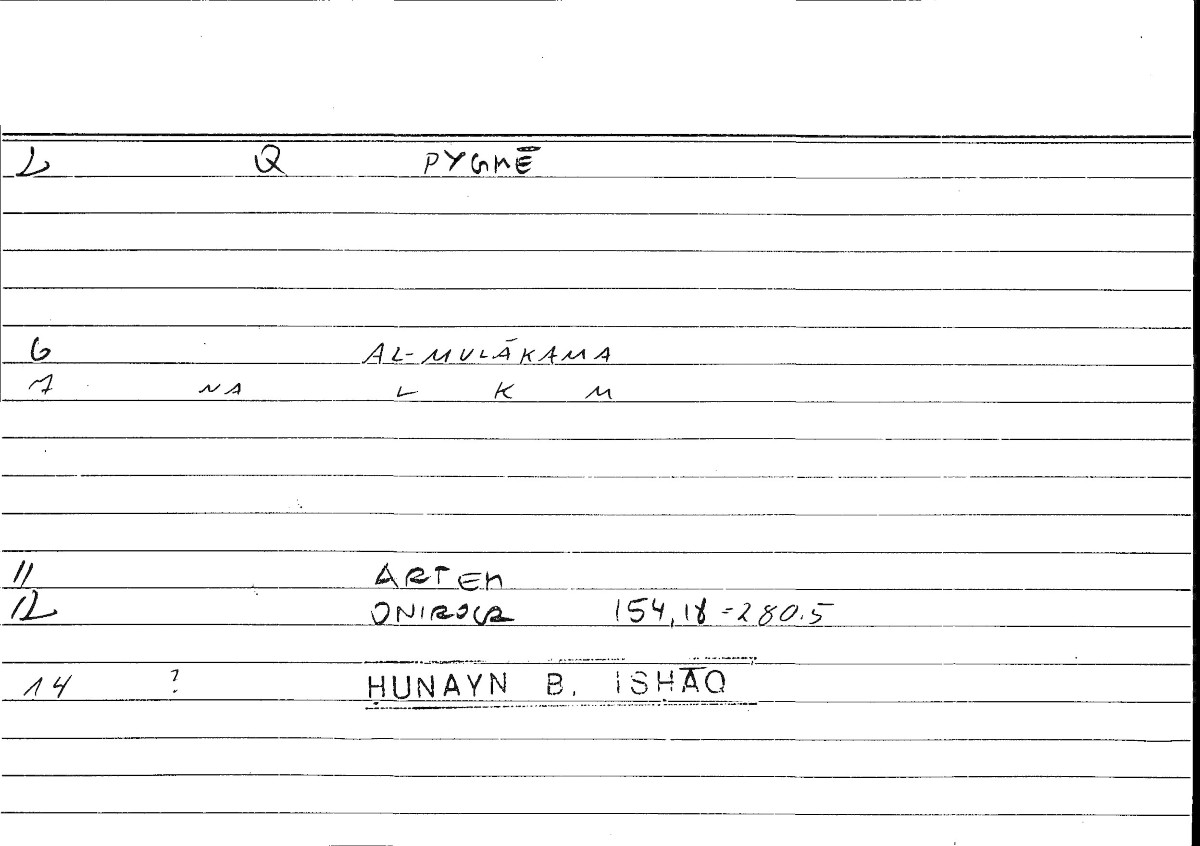 2 Q PYGMĒ
6 AL-MULĀKAMA
7 NA L K M
11 ARTEM
12 ONIROCR 154,18 = 280.5
14 ? ḤUNAYN B. ISḤĀQ